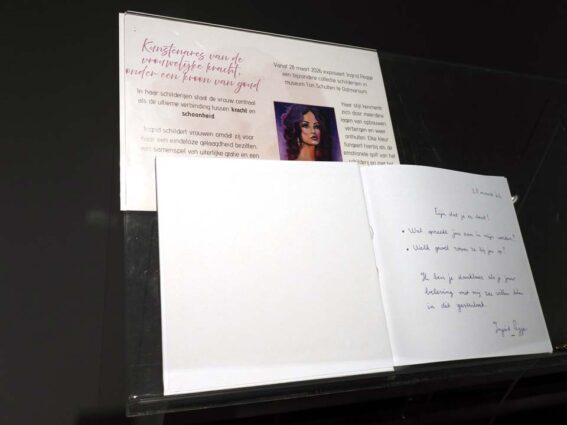 Kunstenares van de
vrouwelijke kracht,
onder een kroon van goud
In haar schilderijen staat de vrouw centraal
als de ultieme verbinding tussen kracht en
schoonheid
Ingrid schildert vrouwen omdat zij voor
haar een eindeloze gelaagdheid bezitten,
een samenspel van uiterlijke gratie en een
Vanaf 28 maart 2026 exposeert Ingrid
een bijzondere collectie schilderijen in
museum Ton Schulten te Ootmarsum.
Haar stijl kenmerkt
zich door meerdere
lagen van opbouwen,
verbergen en weer
onthullen. Elke kleur
fungeert hierbij als de
emotionele golf van het
schilderij en met het
28 maart
Fijn dat je er bent!
• Wat spreekt jou aan in mijn werken?
• Welk gevoel roepen ze bij jou op?
Ik ben je dankbaar als je jouw
beleving met mij zou willen delen
in dit gastenboek.
Ingrid